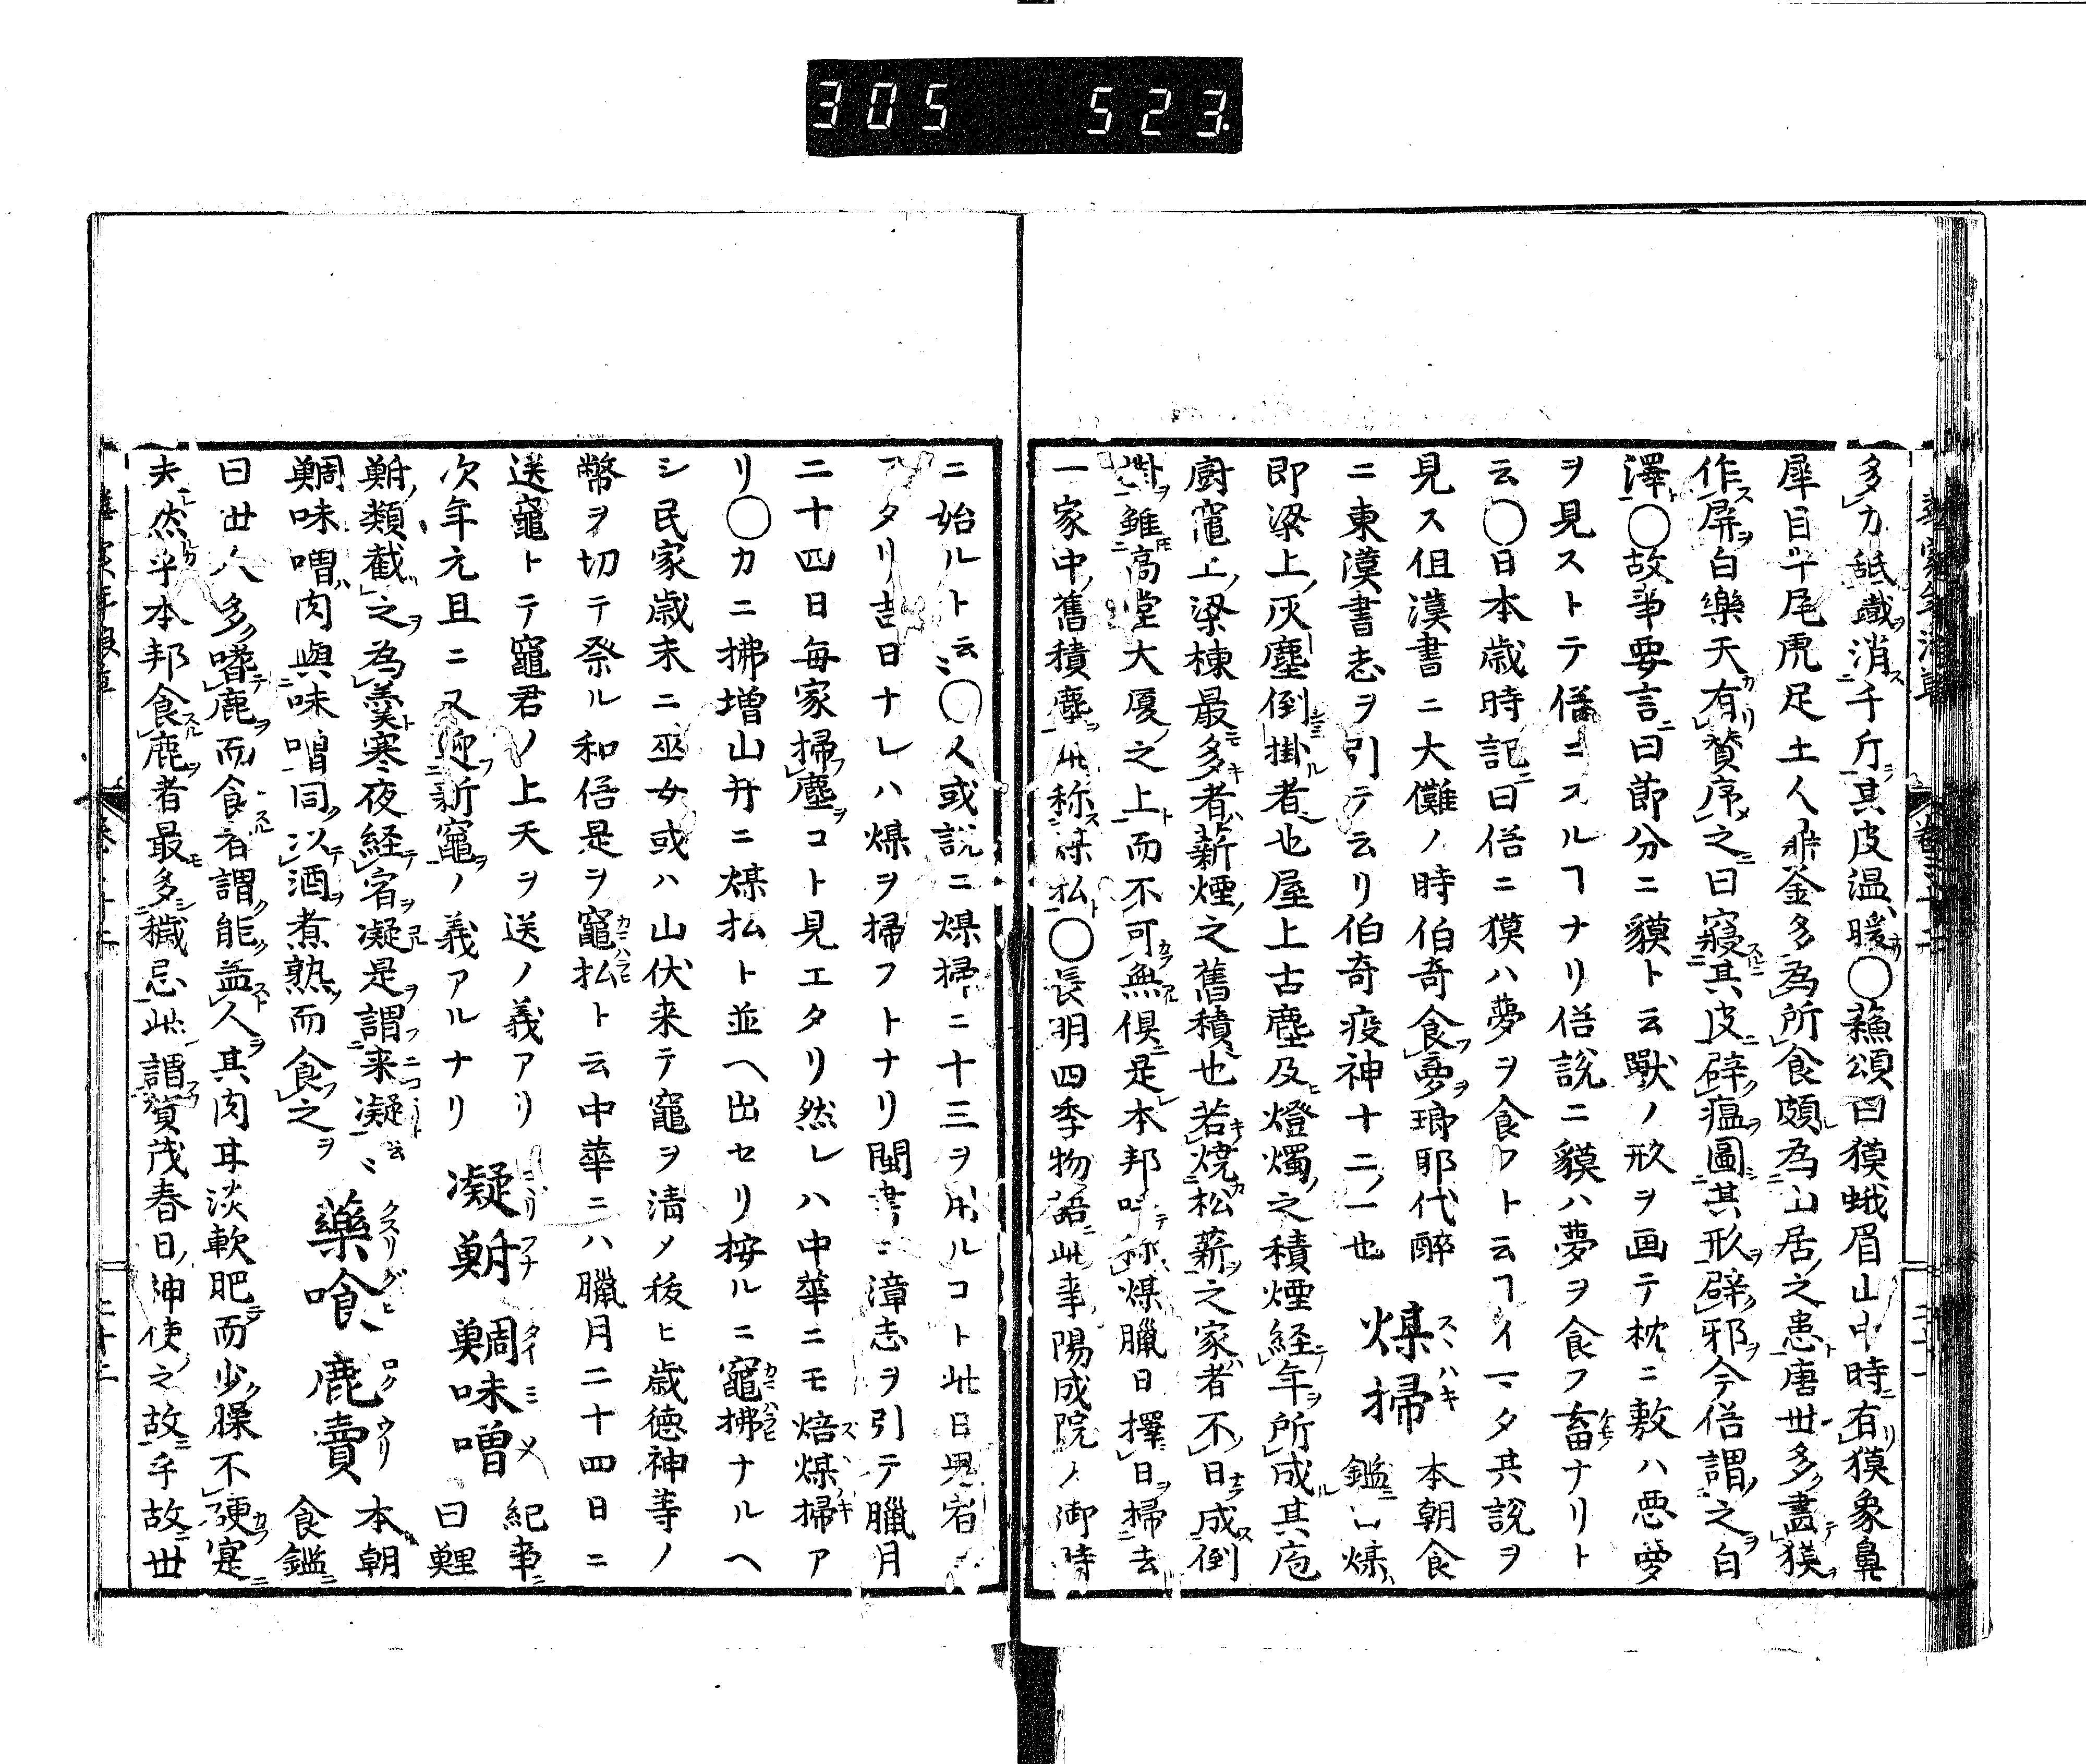 305 523
多力舐鐵消千斤其皮温暖〇蘓頌曰獏蛾眉山中時有獏象鼻
犀目牛尾虎足土人鼎釜多為所食頗為山居之患唐世多畫獏
作屏白樂天有賛序之曰寢其皮辟瘟圖其形辟邪今俗謂之白
澤〇故事要言曰節分ニ貘ト云獸ノ形ヲ画テ枕ニ敷ハ悪夢
ヲ見ストテ俗ニスルヿナリ俗説ニ貘ハ夢ヲ食フ畜ナリト
云〇日本歳時記曰俗ニ獏ハ夢ヲ食フト云ヿイマタ其説ヲ
見ス但漢書ニ大儺ノ時伯奇食夢瑯耶代醉
ニ東漢書志ヲ引テ云リ伯奇疫神十二ノ一也
煤掃 スヽハキ
本朝食
鑑ニ煤
即梁上ノ灰塵倒掛者也屋上古塵及燈燭之積煙経年所成其庖
廚竈上ノ梁棟最多者薪煙之舊積也若燒松薪之家者不日成倒
掛雖高堂大厦之上而不可無倶是本邦呼称煤臘日擇日掃去
一家中舊積塵此称煤払〇長明四季物語此事陽成院ノ御時
ニ始ルト云〻〇人或説ニ煤掃ニ十三ヲ用ルコト此日鬼宿
アタリ吉日ナレハ煤ヲ掃フトナリ閩書ニ漳志ヲ引テ臘月
二十四日毎家掃塵コト見エタリ然レハ中華ニモ焙煤掃ア
リ〇カニ拂増山井ニ煤払ト並ヘ出セリ按ルニ竈拂ナルヘ
シ民家歳末ニ巫女或ハ山伏来テ竈ヲ清メ祓ヒ歳徳神等ノ
幣ヲ切テ祭ル和俗是ヲ竈払ト云中華ニハ臘月二十四日ニ
送竈トテ竈君ノ上天ヲ送ノ義アリ
次年元旦ニ又迎新竈ノ義アルナリ
凝鮒 ニコリフナ
鯛味噌 タイミソ
紀事
曰鯉
鮒類截之為羹寒夜経宿凝是謂来凝云〻
鯛味噌肉與味噌同以酒煮熟而食之
藥喰 クスリグヒ
鹿賣 ロクウリ
本朝
食鑑
曰世人多嗜鹿而食者謂能益人其肉甘淡軟肥而少臊不硬寔
夫然乎本邦食鹿者最多穢忌此謂賀茂春日ノ神使之故乎故世